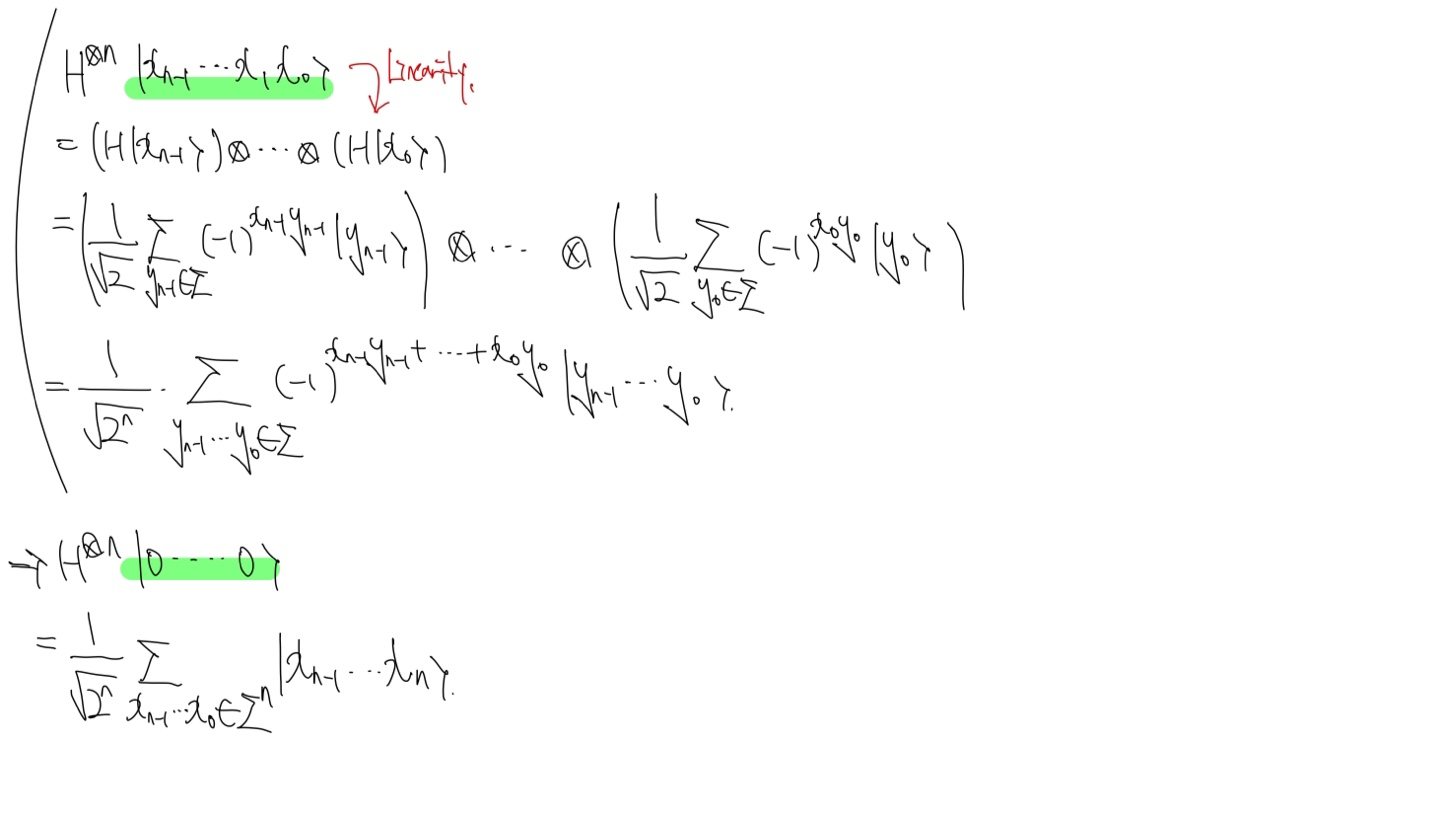 H^{⊗n} |x_{n-1} ⋯ x_1 x_0⟩ Linearity.
= (H|x_{n-1}⟩) ⊗ ⋯ ⊗ (H|x_0⟩)
= (1/√2 ∑_{y_{n-1}∈Σ} (-1)^{x_{n-1}y_{n-1}} |y_{n-1}⟩) ⊗ ⋯ ⊗ (1/√2 ∑_{y_0∈Σ} (-1)^{x_0y_0} |y_0⟩)
= 1/√2^n · ∑_{y_{n-1}⋯y_0∈Σ} (-1)^{x_{n-1}y_{n-1}+⋯+x_0y_0} |y_{n-1}⋯y_0⟩.
→ H^{⊗n} |0⋯⋯0⟩
= 1/√2^n ∑_{x_{n-1}⋯x_0∈Σ^n} |x_{n-1}⋯x_n⟩.